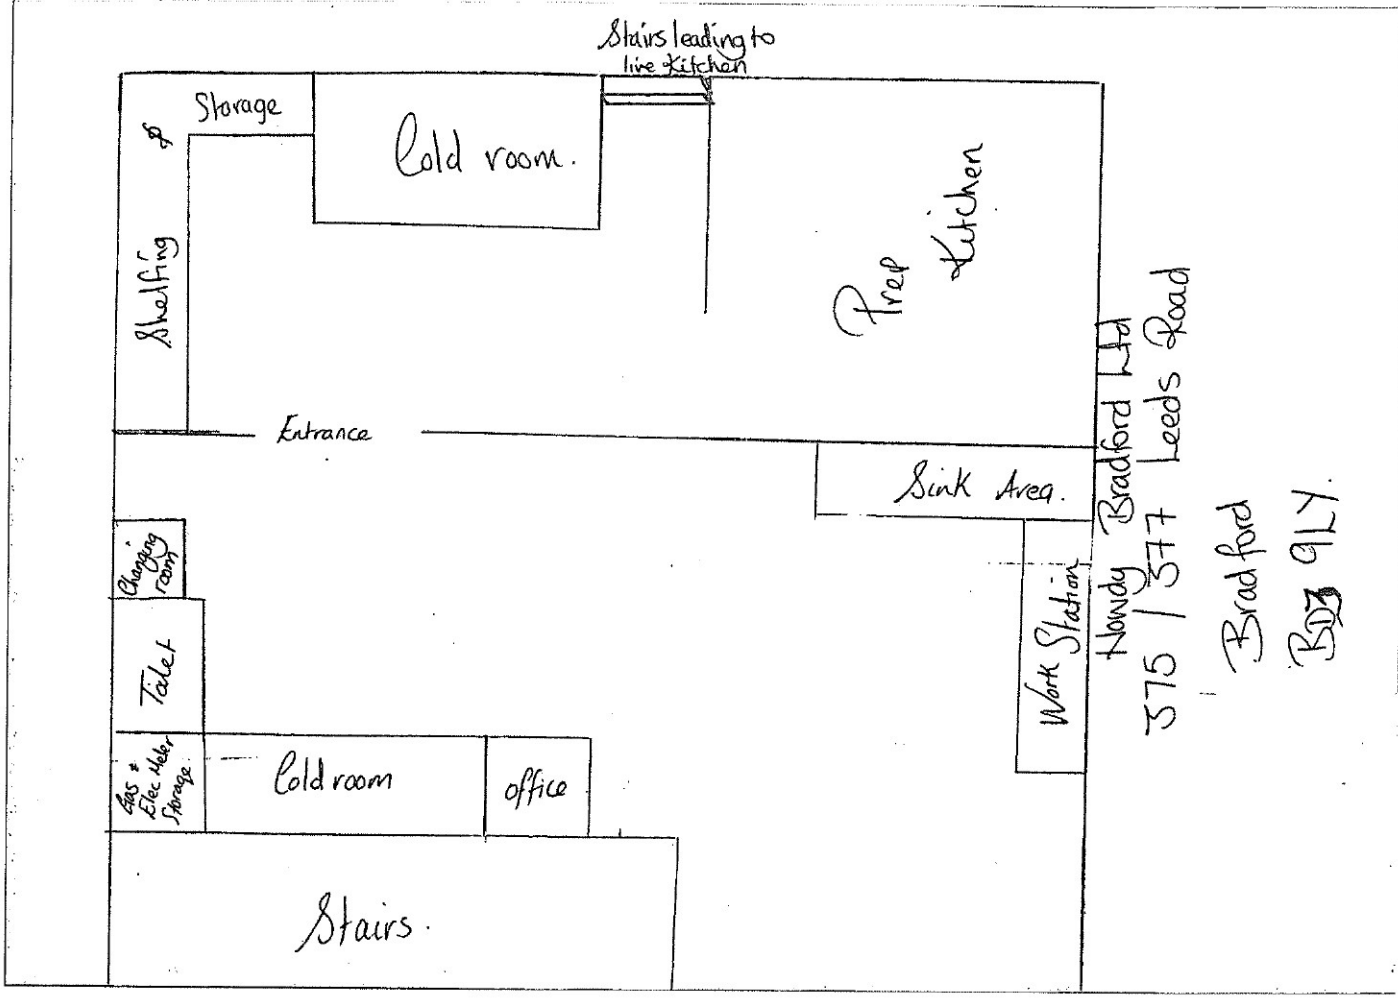 Stairs leading to
live Kitchen
Storage
&
Shelfing
Cold room.
Prep
Kitchen
Entrance
Sink Area.
Changing
room
Toilet
Gas &
Elec Meter
Storage
Cold room
office
Work Station
Stairs.
Nawdy Bradford Ltd
575 / 577 Leeds Road
Bradford
BD3 9LY.